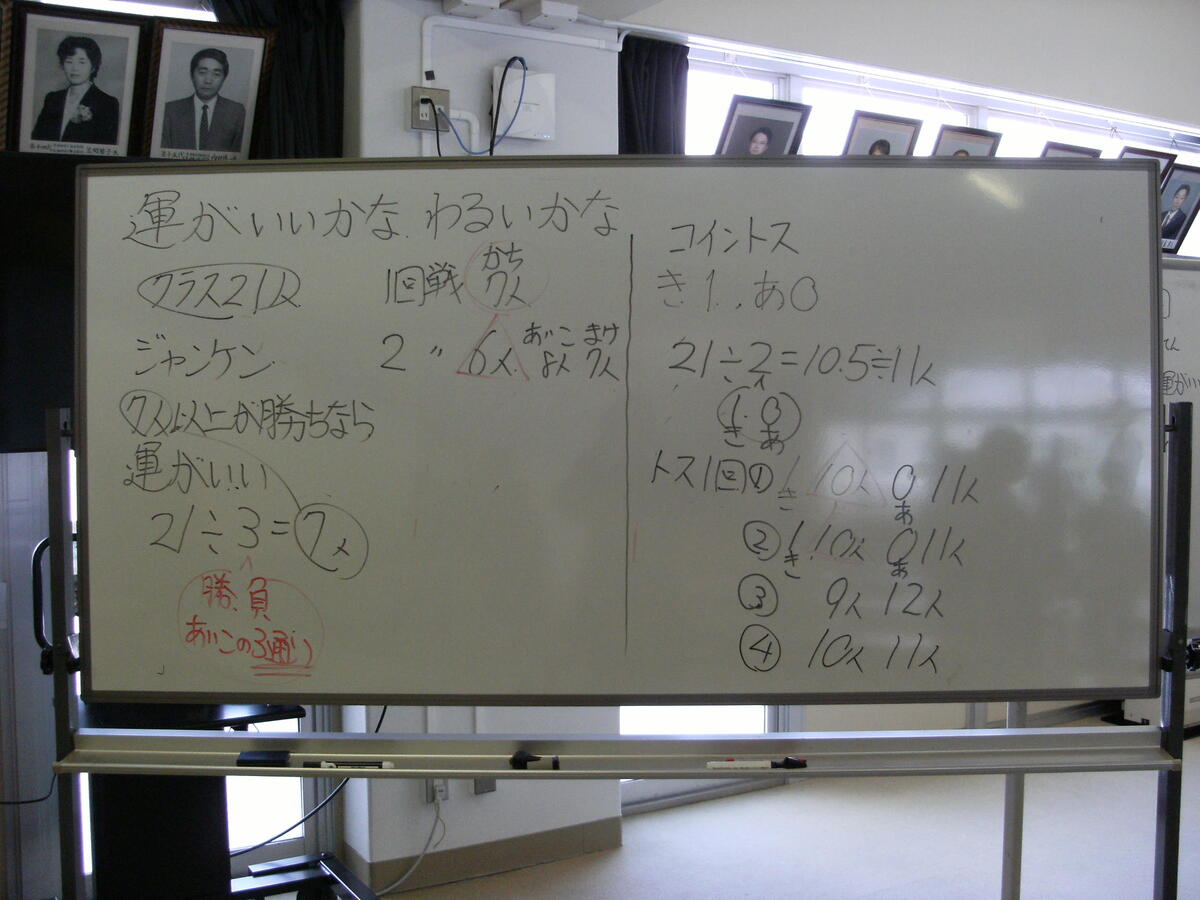 運がいいかな、わるいかな
クラス21人
ジャンケン
7人以上が勝ちなら
運がいい
21÷3=7人
勝、負
あいこの3通り
かち
1回戦 7人
あいこ まけ
2 〃 6人 8人 7人
コイントス
き1、、あ0
21÷2=10.5≒11人
1 0
き あ
トス1回の 1 10人 0 11人
き あ
② 1 10人 0 11人
き あ
③ 9人 12人
④ 10人 11人